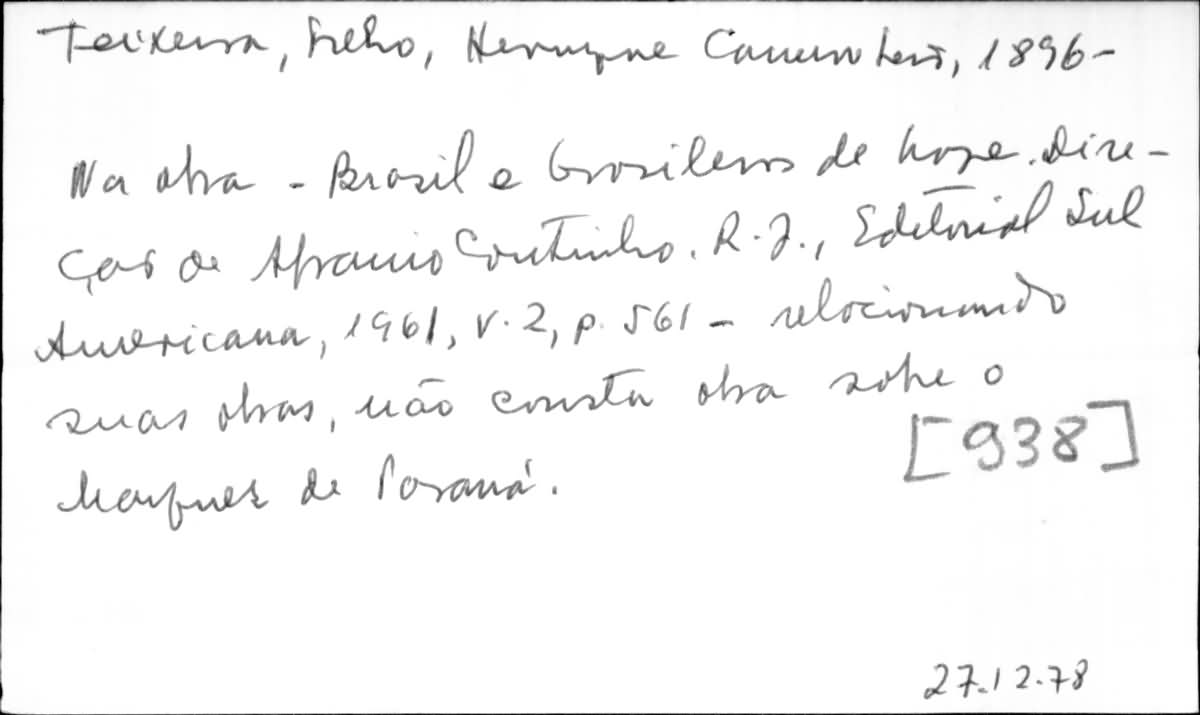 Teixeira, Filho, Henrique Carneiro Leão, 1896-
Na obra - Brasil e brasileiros de hoje. Dire-
ção de Afranio Coutinho. R.J., Editorial Sul
Americana, 1961, v.2, p. 561 - relacionando
suas obras, não consta obra sobre o
Marquez de Paraná.
[938]
27.12.78